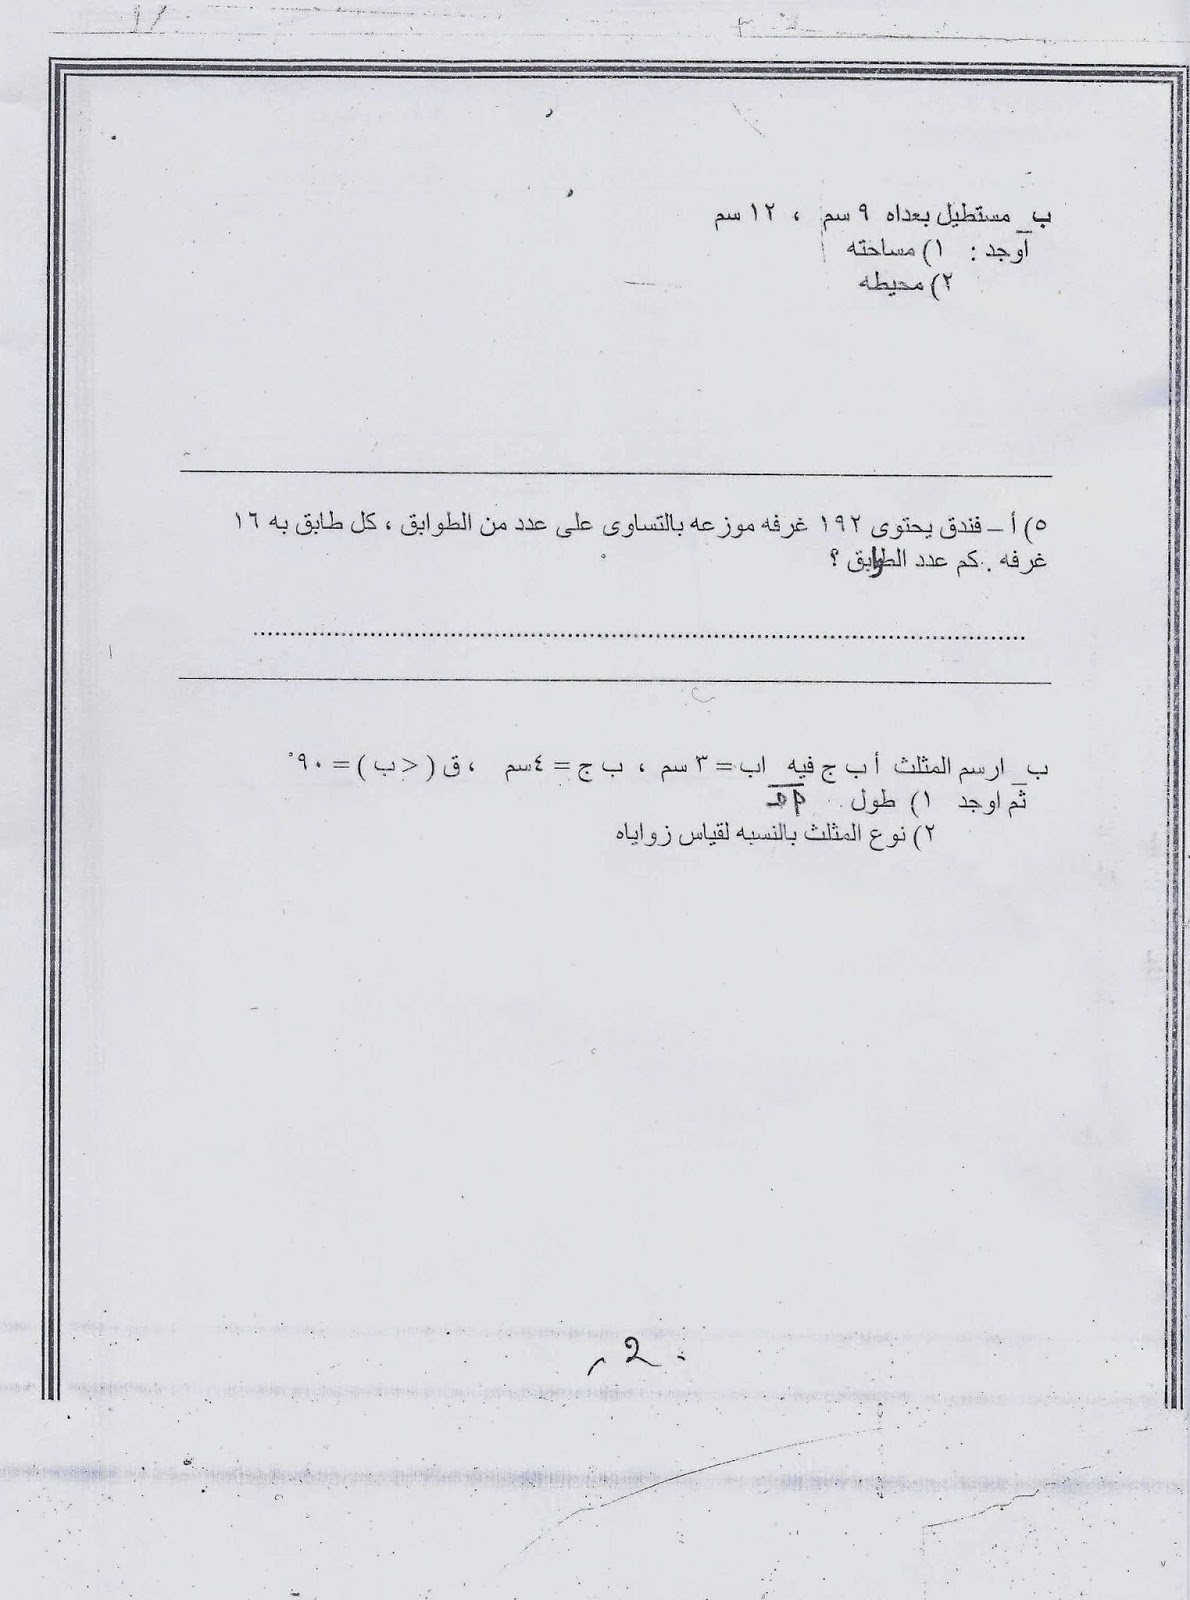 ب_ مستطيل بعداه ٩ سم ، ١٢ سم
اوجد : ١) مساحته
٢) محيطه
٥) أ – فندق يحتوى ١٩٢ غرفه موزعه بالتساوى على عدد من الطوابق ، كل طابق به ١٦
غرفه . كم عدد الطوابق ؟
ب_ ارسم المثلث أ ب ج فيه اب = ٣ سم ، ب ج = ٤سم ، ق ( < ب ) = ٩٠°
ثم اوجد ١) طول أج
٢) نوع المثلث بالنسبه لقياس زواياه
2